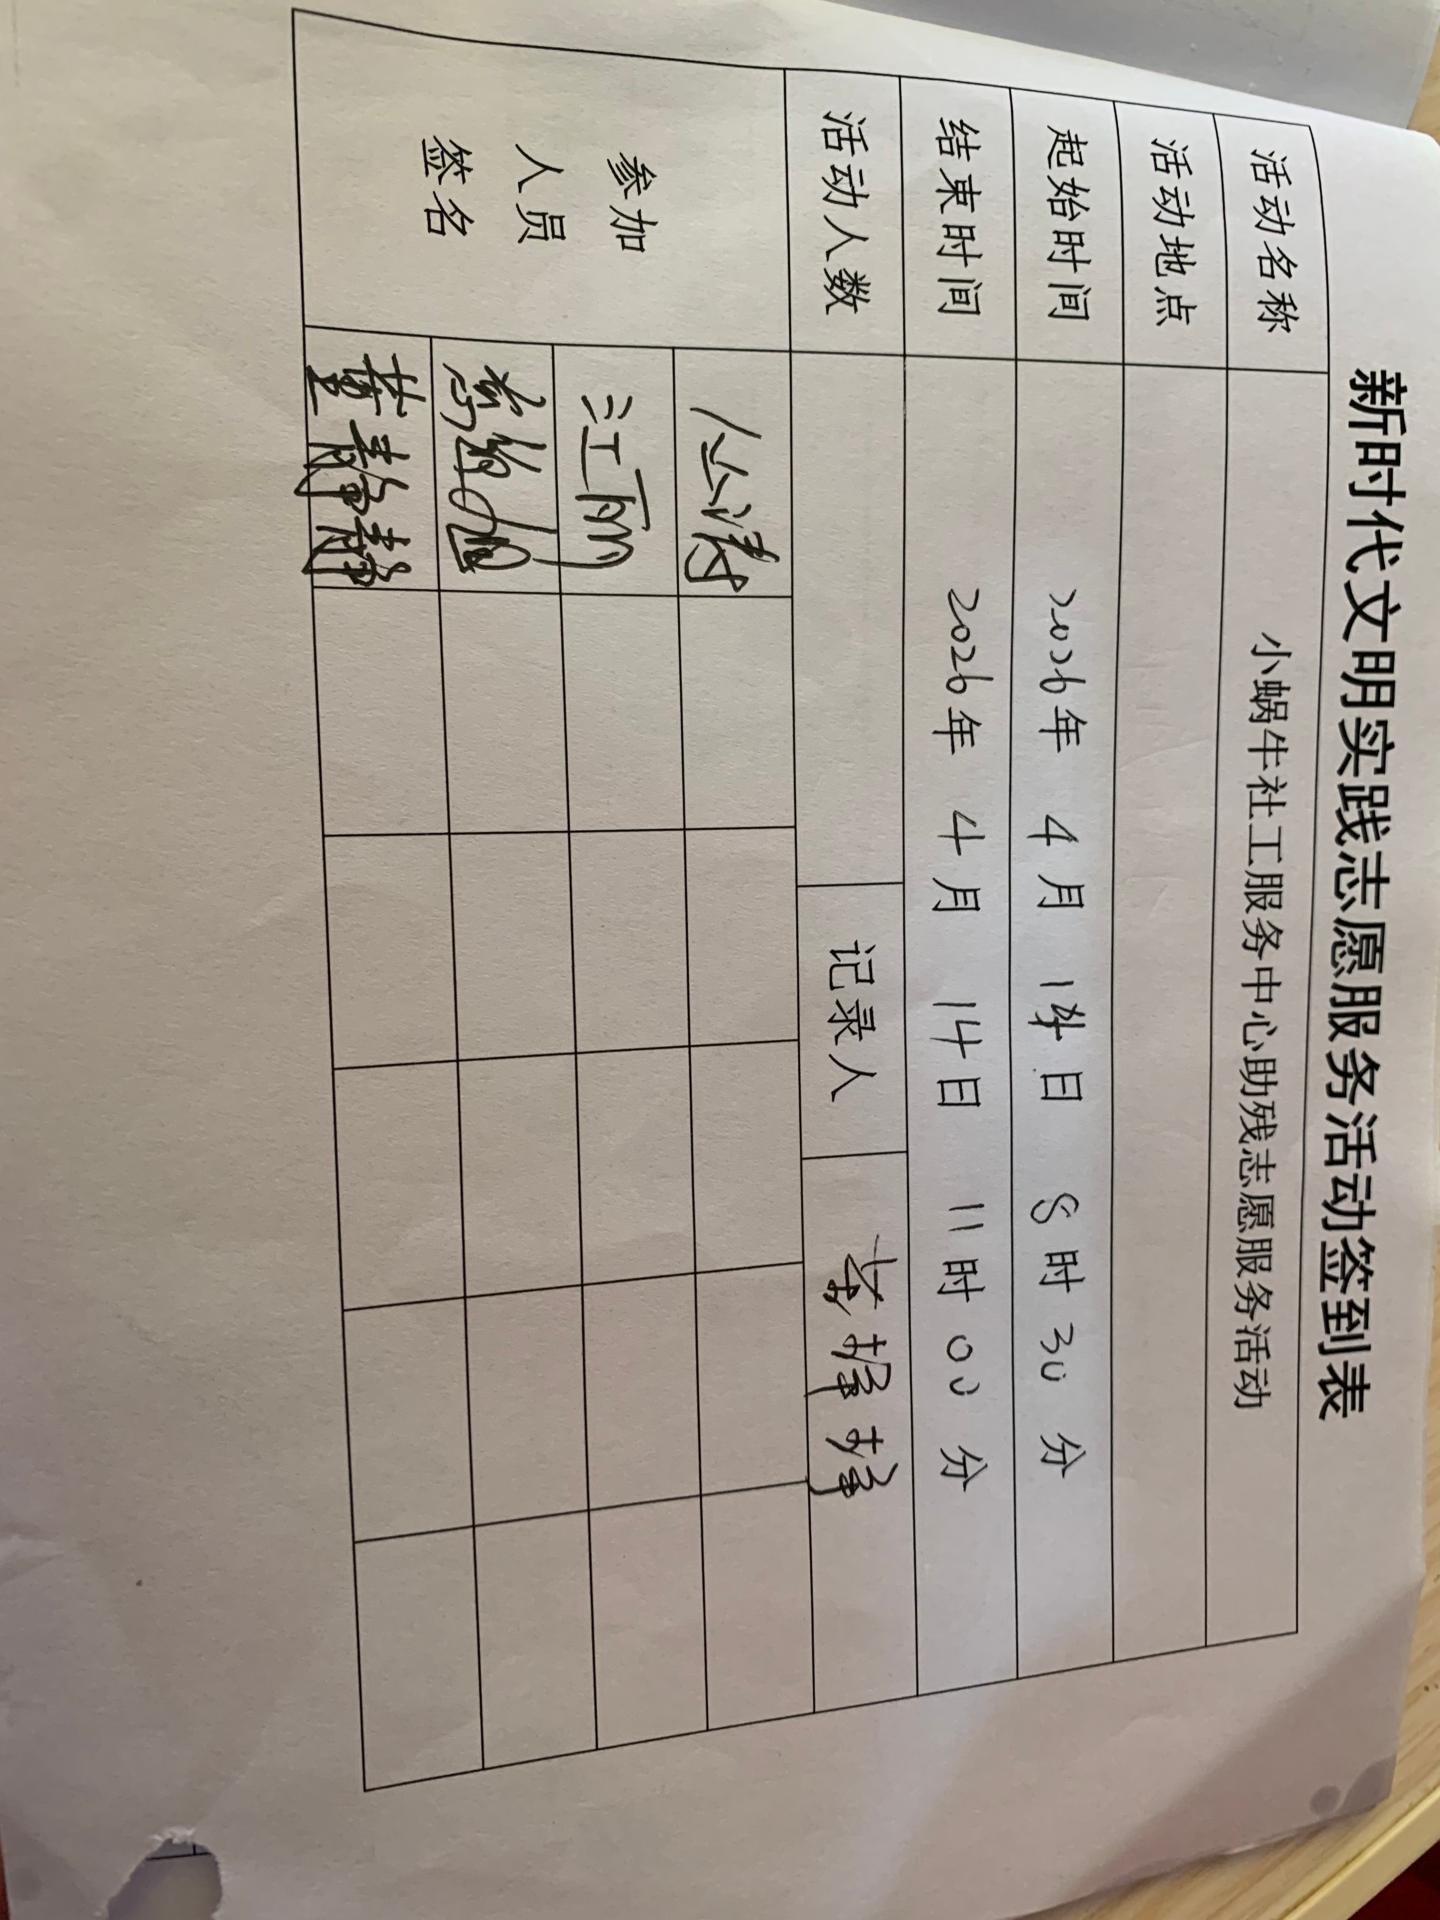 新时代文明实践志愿服务活动签到表
活动名称 小蜗牛社工服务中心助残志愿服务活动
活动地点
起始时间 2026年 4月 14日 8时 30分
结束时间 2026年 4月 14日 11时 00分
活动人数 记录人
参加
人员
签名
江丽
董静静